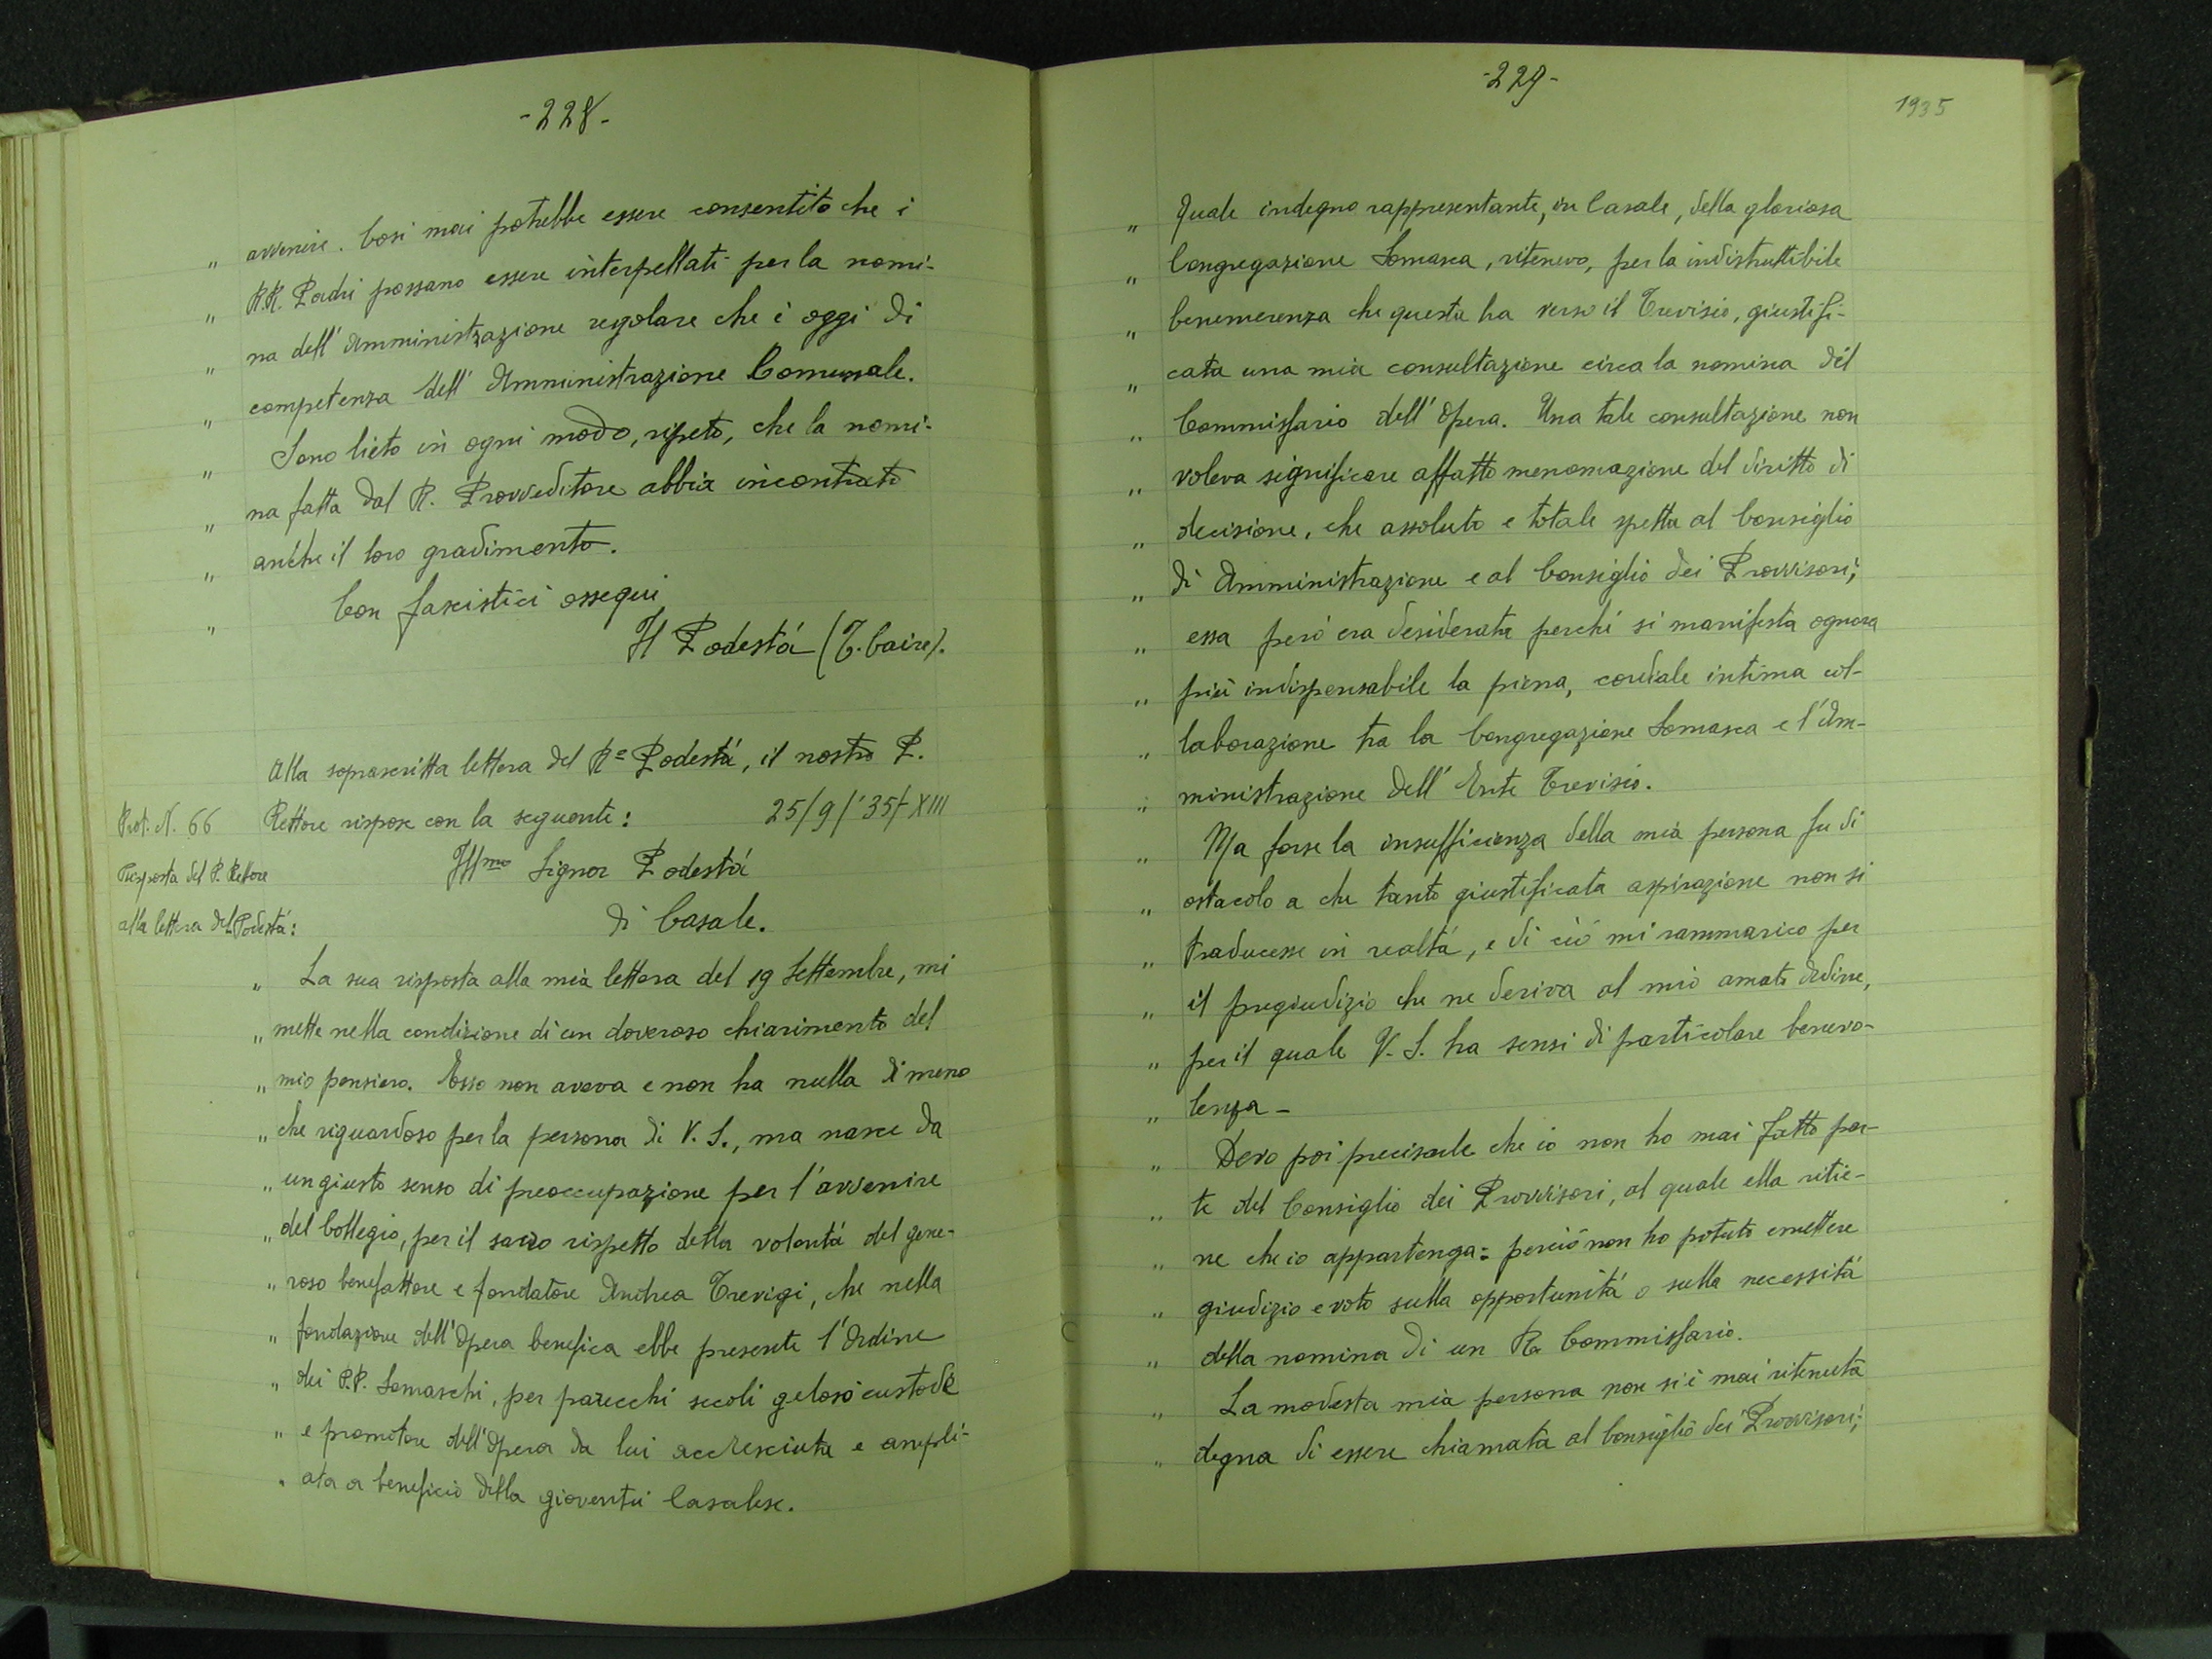 -228-
" avvenire. Così mai potrebbe essere consentito che i
" R.R. Padri possano essere interpellati per la nomi-
" na dell'Amministrazione regolare che è oggi di
" competenza dell'Amministrazione Comunale.
" Sono lieto in ogni modo, ripeto, che la nomi-
" na fatta dal R. Provveditore abbia incontrato
" anche il loro gradimento.
" Con fascistici ossequi
Il Podestá (T. Caire).
Alla soprascritta lettera del R= Podestá, il nostro P.
Prot. N. 66
Rettore rispose con la seguente: 25/9/'35/-XIII
Risposta del P. Rettore
alla lettera del Podestá:
Ill mo Signor Podestá
di Casale.
" La sua risposta alla mia lettera del 19 Settembre, mi
" mette nella condizione di un doveroso chiarimento del
" mio pensiero. Esso non aveva e non ha nulla di meno
" che riguardoso per la persona di V. S., ma nasce da
" un giusto senso di preoccupazione per l'avvenire
" del Collegio, per il sacro rispetto della volontá del gene-
" roso benefattore e fondatore Andrea Trevigi, che nella
" fondazione dell'Opera benefica ebbe presente l'Ordine
" dei P.P. Somaschi, per parecchi secoli geloso custode
" e promotore dell'Opera da lui accresciuta e ampli-
" ata a beneficio della gioventú Casalese.
-229-
1935
" Quale indegno rappresentante, in Casale, della gloriosa
" Congregazione Somasca, ritenevo, per la indistruttibile
" benemerenza che questa ha verso il Trevisio, giustifi-
" cata una mia consultazione circa la nomina del
" Commissario dell'Opera. Una tale consultazione non
" voleva significare affatto menomazione del diritto di
" decisione, che assoluto e totale spetta al Consiglio
" di Amministrazione e al Consiglio dei Provvisori;
" essa peró era desiderata perché si manifesta ognora
" piú indispensabile la piena, cordiale intima col-
" laborazione tra la Congregazione Somasca e l'Am-
" ministrazione dell'Ente Trevisio.
" Ma forse la insufficienza della mia persona fu di
" ostacolo a che tanto giustificata aspirazione non si
" traducesse in realtá, e di ció mi rammarico per
" il pregiudizio che ne deriva al mio amato Ordine,
" per il quale V. S. ha sensi di particolare benevo-
" lenza -
" Devo poi precisarle che io non ho mai fatto par-
" te del Consiglio dei Provvisori, al quale ella ritie-
" ne che io appartenga: perció non ho potuto emettere
" giudizio e voto sulla opportunitá o sulla necessitá
" della nomina di un R= Commissario.
" La modesta mia persona non si è mai ritenuta
" degna di essere chiamata al Consiglio dei Provvisori;